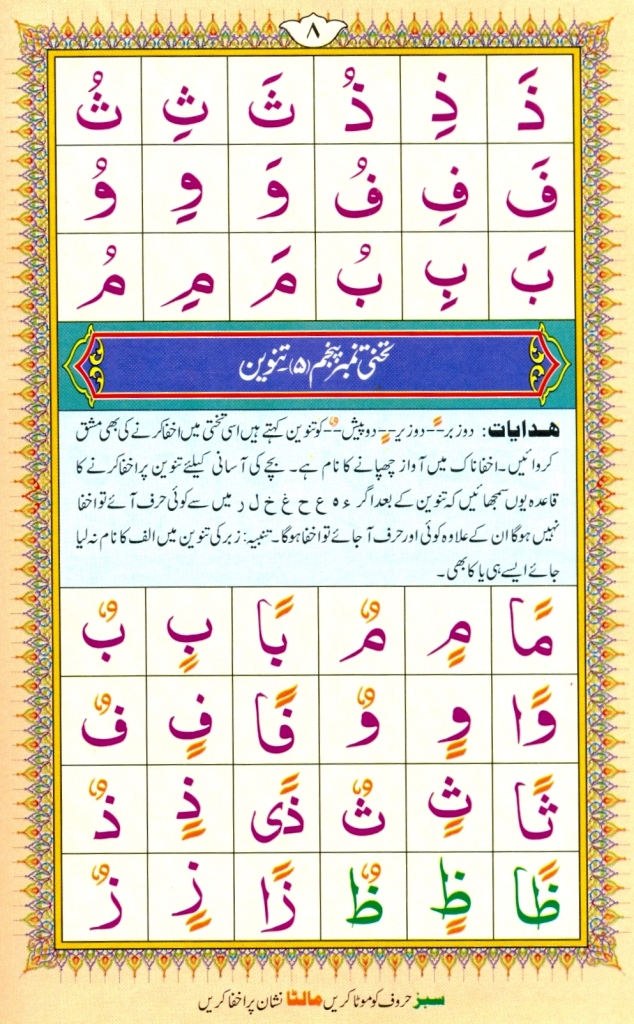 ٨
ذَ ذِ ذُ ثَ ثِ ثُ
فَ فِ فُ وَ وِ وُ
بَ بِ بُ مَ مِ مُ
تختی نمبر پنجم (۵)۔ تنوین
ھدایات: دو زبر--ً دو زیر--ٍ دو پیش--ٌ کو تنوین کہتے ہیں اسی تختی میں اخفا کرنے کی بھی مشق
کروائیں۔ اخفا ناک میں آواز چھپانے کا نام ہے۔ بچے کی آسانی کیلئے تنوین پر اخفا کرنے کا
قاعدہ یوں سمجھائیں کہ تنوین کے بعد اگر ء ہ ع ح غ خ ل ر میں سے کوئی حرف آئے تو اخفا
نہیں ہوگا ان کے علاوہ کوئی اور حرف آ جائے تو اخفا ہوگا۔ تنبیہ: زبر کی تنوین میں الف کا نام نہ لیا
جائے ایسے ہی یا کا بھی۔
مًا مٍ مٌ بًا بٍ بٌ
وًا وٍ وٌ فًا فٍ فٌ
ثًا ثٍ ثٌ ذًی ذٍ ذٌ
ظًا ظٍ ظٌ زًا زٍ زٌ
سبز حروف کو موٹا کریں مالٹا نشان پر اخفا کریں